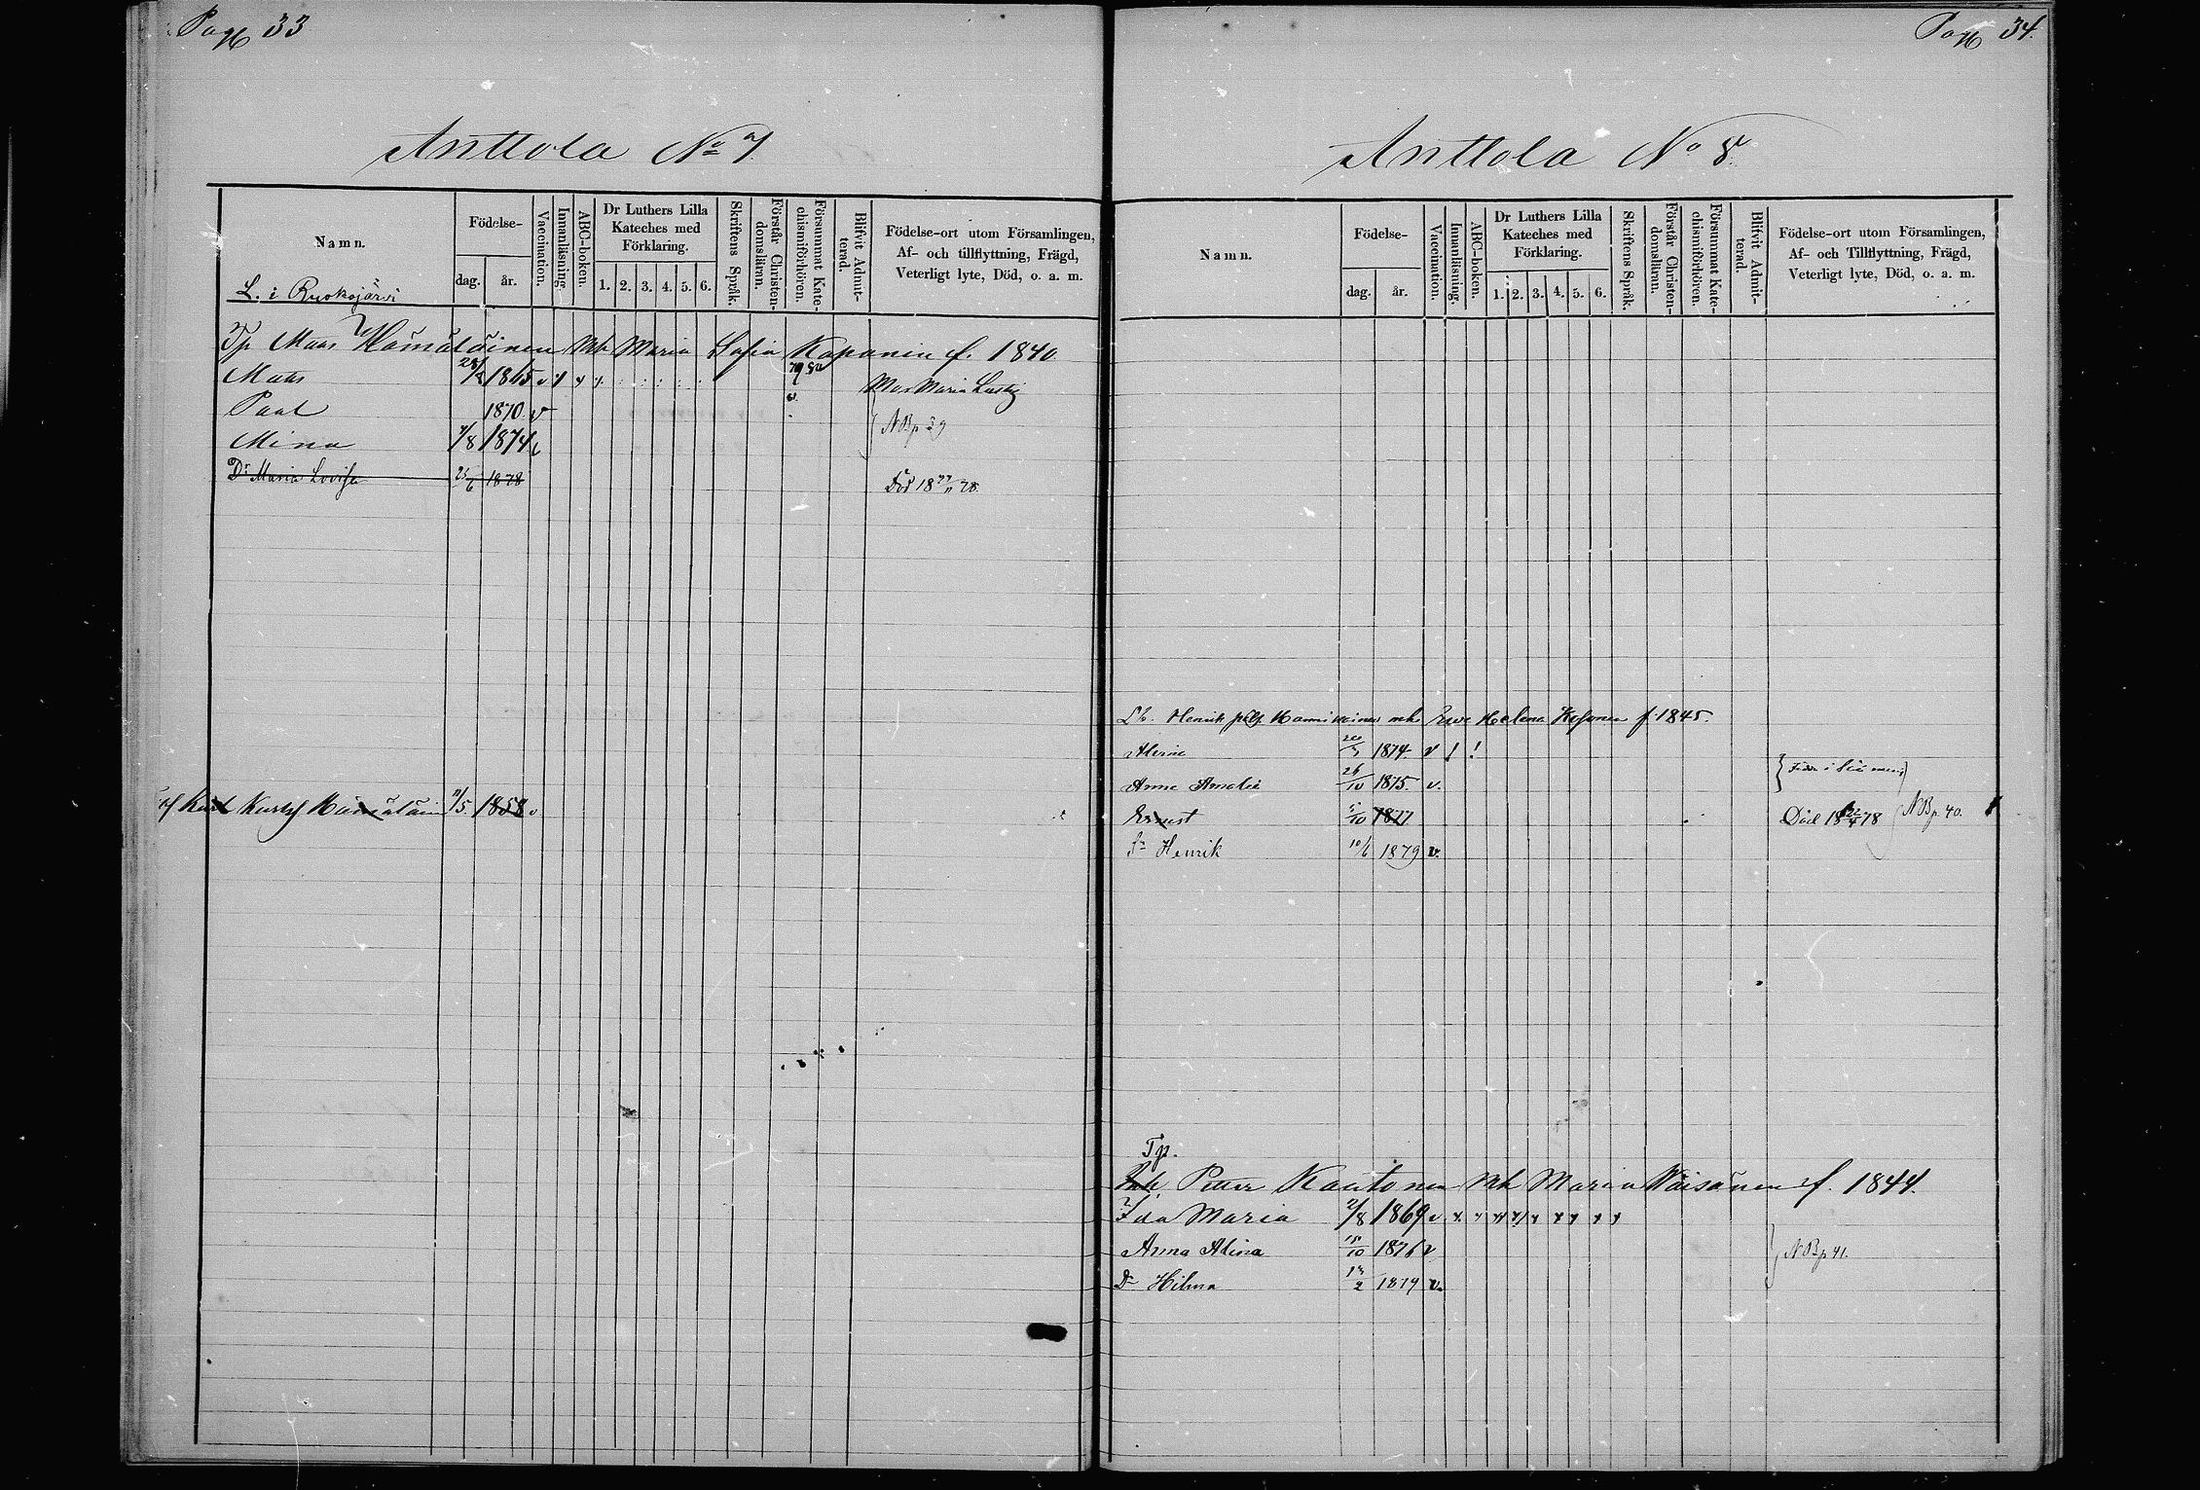 Pag 33
Anttola No 7.
Namn.
Födelse-
dag.
år.
Vaccination.
Innanläsning.
ABC-boken.
Dr Luthers Lilla Kateches med Förklaring.
1. 2. 3. 4. 5. 6.
Skriftens Språk.
Förstår Christendomsläran.
Försummat Katechismiförhören.
Blifvit Admitterad.
Födelse-ort utom Församlingen,
Af- och tillflyttning, Frägd,
Veterligt lyte, Död, o. a. m.
L. i Ruokojärvi
Tp Hämäläinen Mh Maria Sofia f. 1840
Mats 1865 v 79 80
Paal 1870 v NB p 39
Mina 7/8 1874
Dr Maria Lovisa 25/6 1878 Död 18 78
11/5. 1858 v
Pag 34.
Anttola No 8.
Namn.
Födelse-
dag.
år.
Vaccination.
Innanläsning.
ABC-boken.
Dr Luthers Lilla Kateches med Förklaring.
1. 2. 3. 4. 5. 6.
Skriftens Språk.
Förstår Christendomsläran.
Försummat Katechismiförhören.
Blifvit Admitterad.
Födelse-ort utom Församlingen,
Af- och Tillflyttning, Frägd,
Veterligt lyte, Död, o. a. m.
Henrik mh Helena f. 1845.
1874 v ! !
Anna Amalia 26/10 1875. v.
Ernst 1877 Död 18 78 NB p. 40.
Sn Henrik 10/6 1879 v.
Tp.
Petter Kautonen Mh Maria Väisänen f. 1844.
Ida Maria 2/8 1869 v
Anna Alina 15/10 1876 v NB p 41.
Dr Hilma 1879 v.